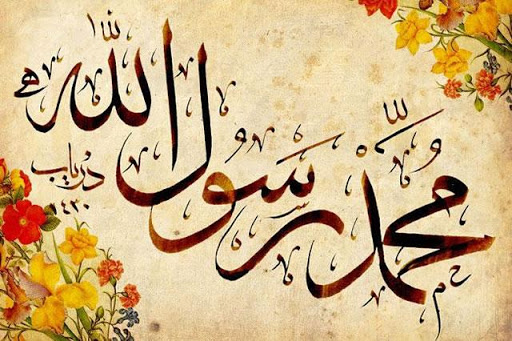 مُحَمَّدٌ رَسُولُ اللّٰه
درياب
١٤٣٠